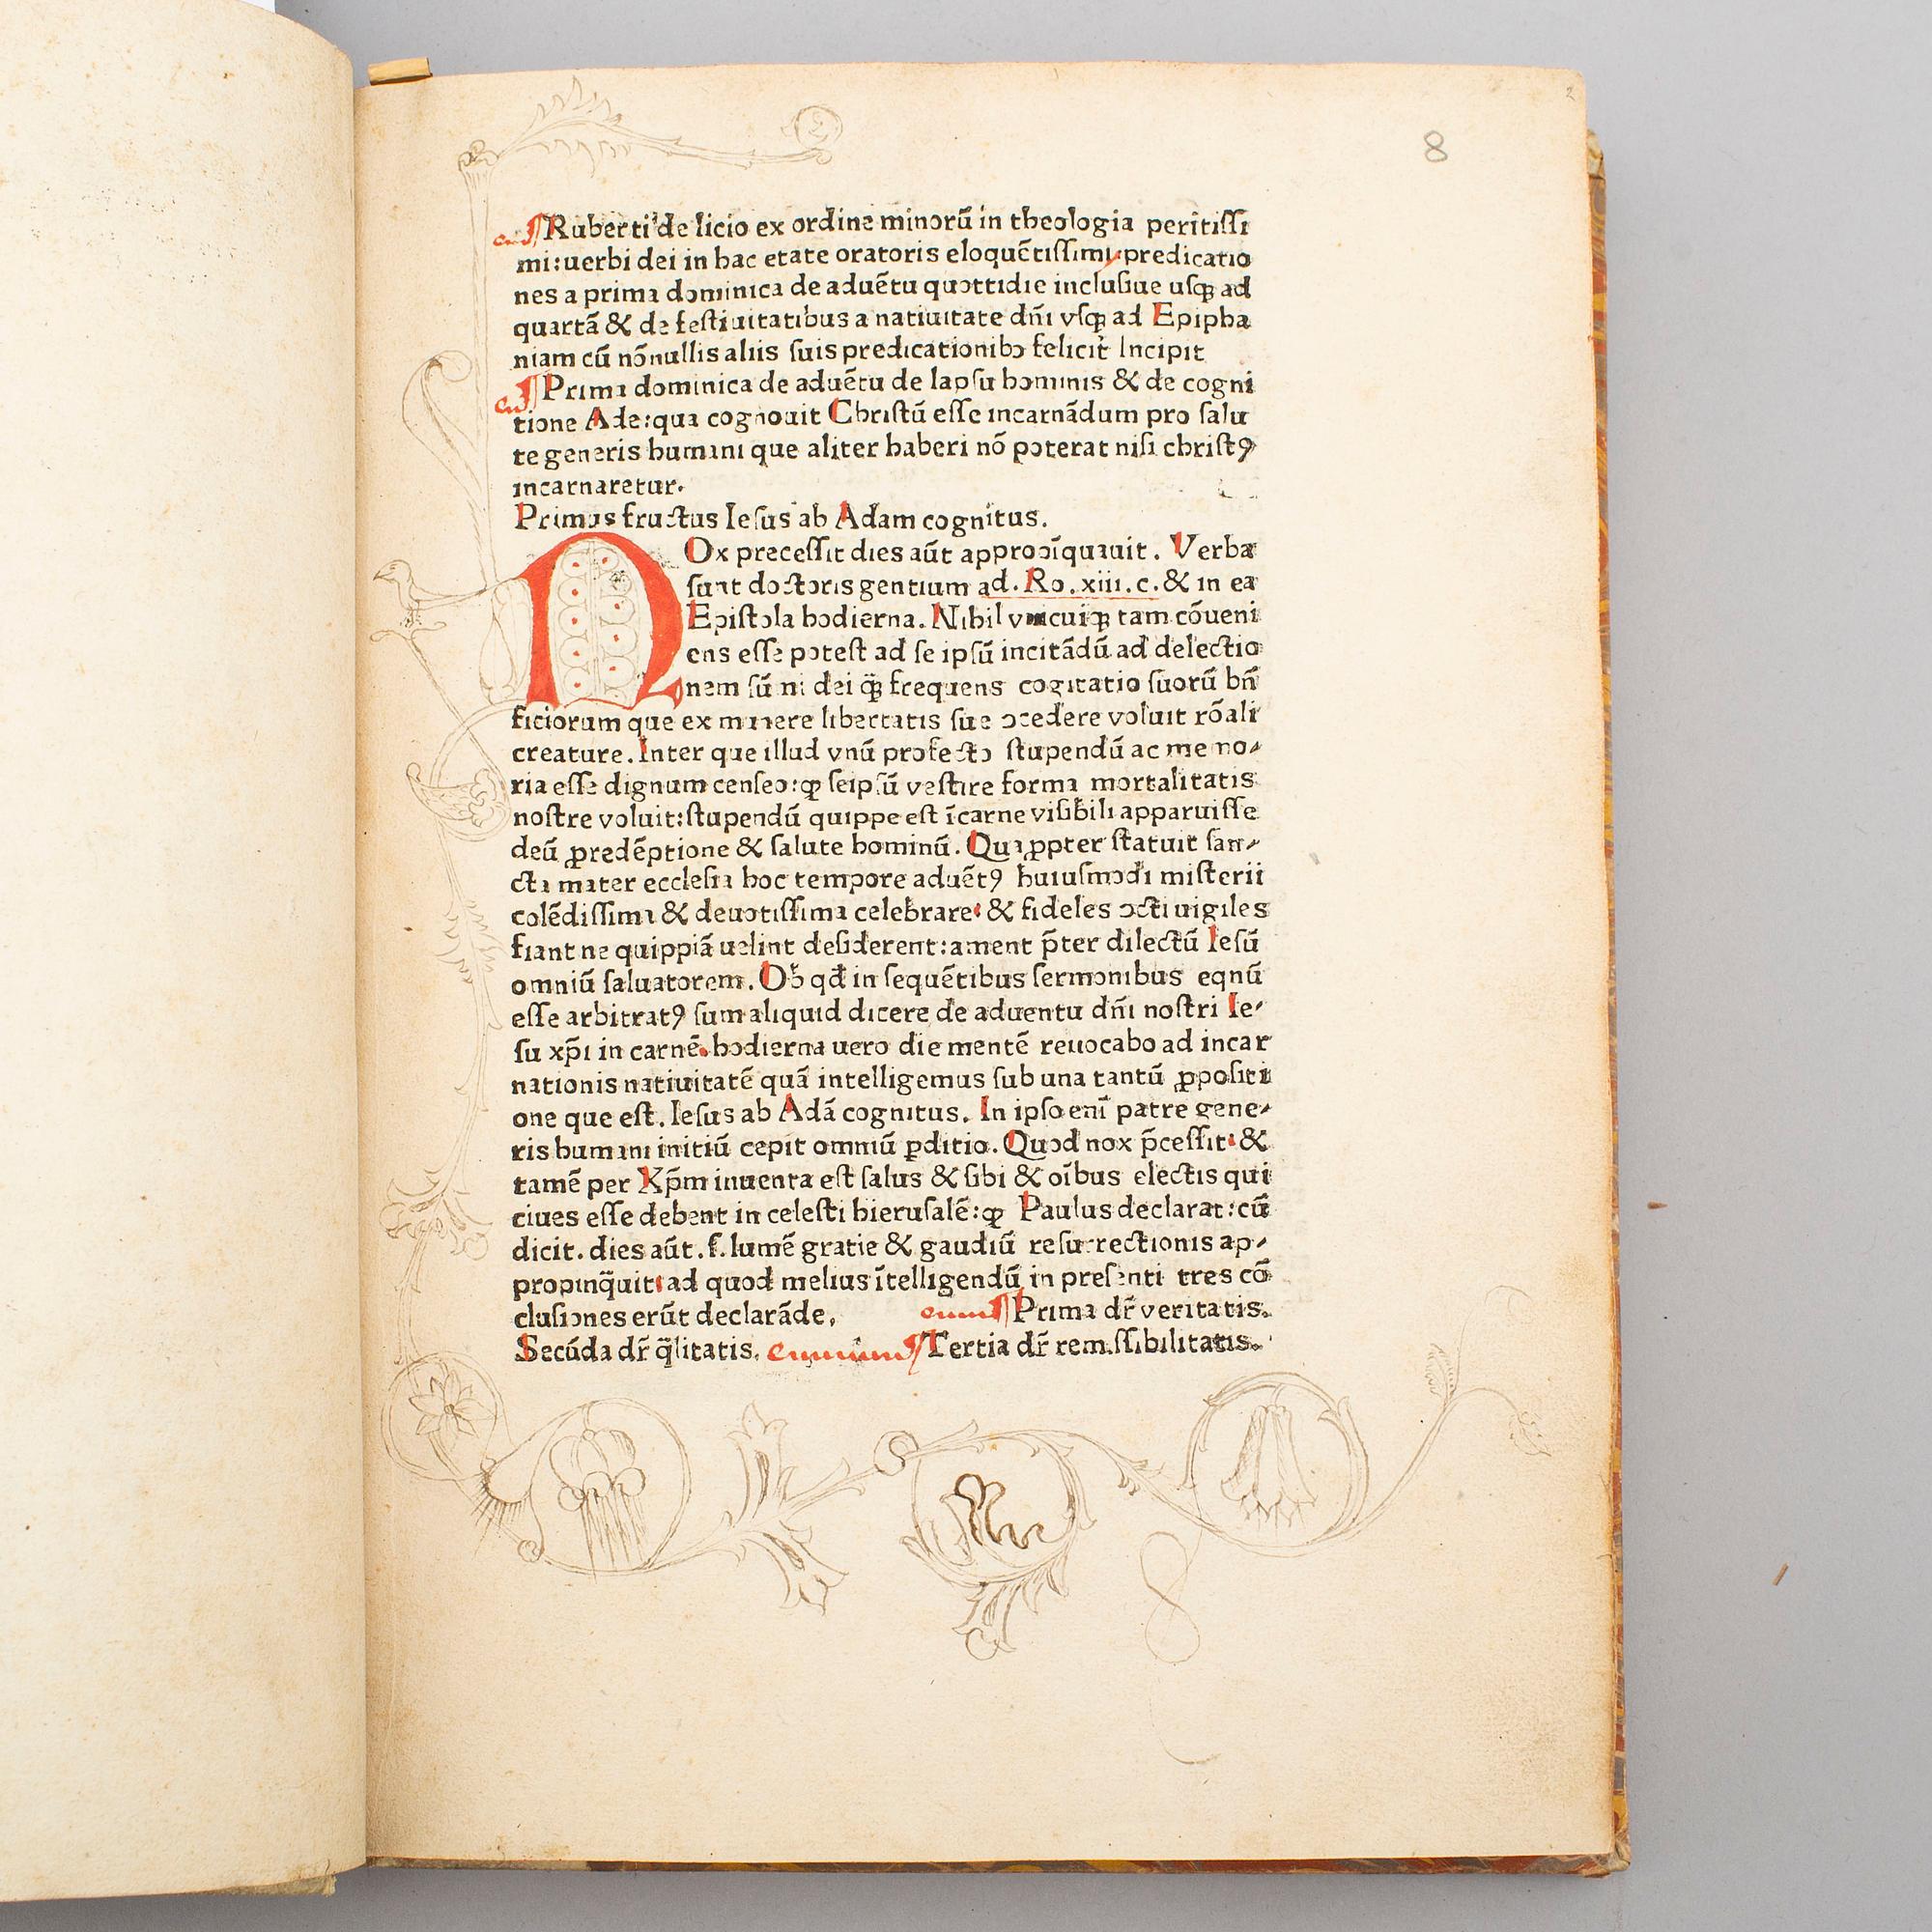 2
8
¶ Ruberti de licio ex ordine minorū in theologia peritissi
mi:uerbi dei in hac etate oratoris eloquētissimi predicatio
nes a prima dominica de aduētu quottidie inclusiue usqꝫ ad
quartā & de festiuitatibus a natiuitate dñi vsqꝫ ad Epipha
niam cū nōnullis aliis suis predicationibꝰ felicit̄ Incipit
¶ Prima dominica de aduētu de lapsu hominis & de cogni
tione Ade:qua cognouit Christū esse incarnādum pro salu
te generis humani que aliter haberi nō poterat nisi christꝰ
incarnaretur.
Primus fructus Iesus ab Adam cognitus.
NOx precessit dies aūt appropīquauit. Verba
sunt doctoris gentium ad. Ro. xiii. c. & in ea
Epistola hodierna. Nihil vnicuiqꝫ tam cōueni
ens esse potest ad se ipsū incitādū ad delectio
nem sūmi dei q̄ꝫ frequens cogitatio suorū bn̄
ficiorum que ex munere libertatis sue ꝯcedere voluit rōali
creature. Inter que illud vnū profecto stupendū ac memo-
ria esse dignum censeo:ꝙ seipsū vestire forma mortalitatis
nostre voluit:stupendū quippe est ī carne visibili apparuisse
deū ꝓ redēptione & salute hominū. Quaꝓpter statuit san-
cta mater ecclesia hoc tempore aduētꝰ huiusmodi misterii
colēdissima & deuotissima celebrare: & fideles ꝯcti uigiles
fiant ne quippiā uelint desiderent:ament p̄ter dilectū Iesū
omniū saluatorem. Ob qd̄ in sequētibus sermonibus eqnū
esse arbitratꝰ sum aliquid dicere de aduentu dñi nostri Ie-
su xp̄i in carnē. hodierna uero die mentē reuocabo ad incar
nationis natiuitatē quā intelligemus sub una tantū ꝓpositi
one que est. Iesus ab Adā cognitus. In ipso enī patre gene-
ris humani initiū cepit omniū ꝑditio. Quod nox p̄cessit: &
tamē per Xp̄m inuenta est salus & sibi & oībus electis qui
ciues esse debent in celesti hierusalē:ꝙ Paulus declarat:cū
dicit. dies aūt .s. lumē gratie & gaudiū resurrectionis ap-
propinq̄uit: ad quod melius ītelligendū in presenti tres cō
clusiones erūt declarāde. ¶ Prima dr̄ veritatis.
Secūda dr̄ q̄litatis. ¶ Tertia dr̄ remissibilitatis.